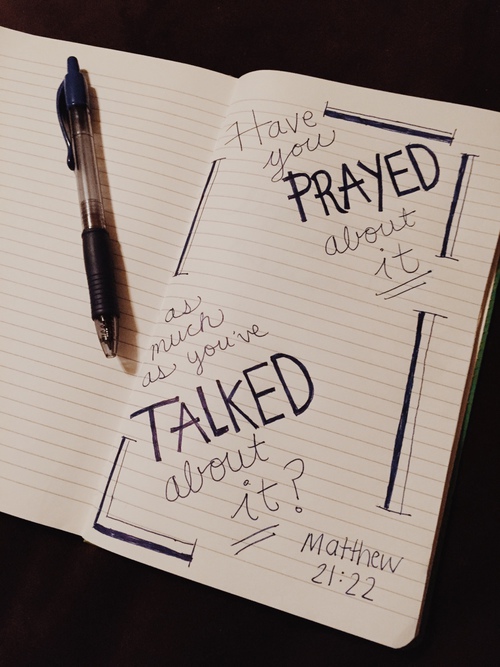 Have
you
PRAYED
about
it
as
much
as you've
TALKED
about
it?
Matthew
21:22